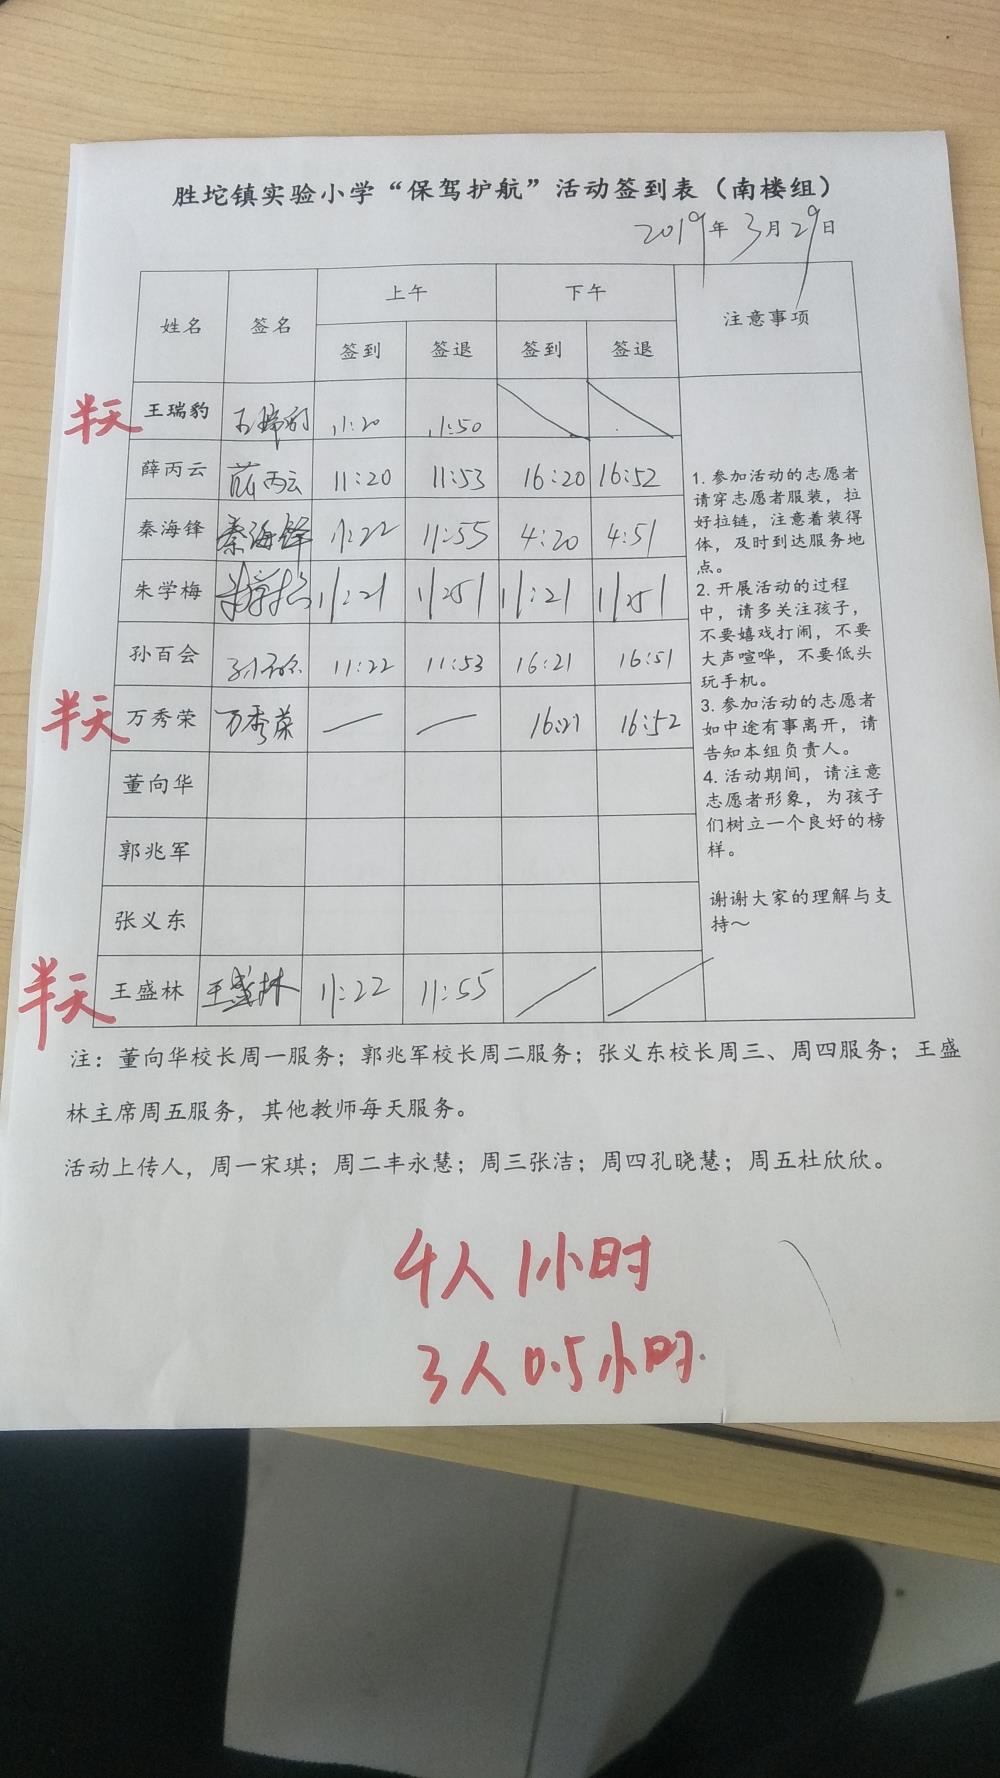 胜坨镇实验小学“保驾护航”活动签到表（南楼组）
2019年3月29日
姓名 签名 上午 下午 注意事项
签到 签退 签到 签退
半天 王瑞豹 王瑞豹 11:20 11:50
薛丙云 薛丙云 11:20 11:53 16:20 16:52
秦海锋 秦海锋 11:22 11:55 4:20 4:51
朱学梅 朱学梅 11:21 11:51 11:21 11:51
孙百会 11:22 11:53 16:21 16:51
半天 万秀荣 万秀荣 — — 16:21 16:52
董向华
郭兆军
张义东
半天 王盛林 王盛林 11:22 11:55
1. 参加活动的志愿者
请穿志愿者服装，拉
好拉链，注意着装得
体，及时到达服务地
点。
2. 开展活动的过程
中，请多关注孩子，
不要嬉戏打闹，不要
大声喧哗，不要低头
玩手机。
3. 参加活动的志愿者
如中途有事离开，请
告知本组负责人。
4. 活动期间，请注意
志愿者形象，为孩子
们树立一个良好的榜
样。
谢谢大家的理解与支
持～
注：董向华校长周一服务；郭兆军校长周二服务；张义东校长周三、周四服务；王盛
林主席周五服务，其他教师每天服务。
活动上传人，周一宋琪；周二丰永慧；周三张洁；周四孔晓慧；周五杜欣欣。
4人1小时
3人0.5小时.